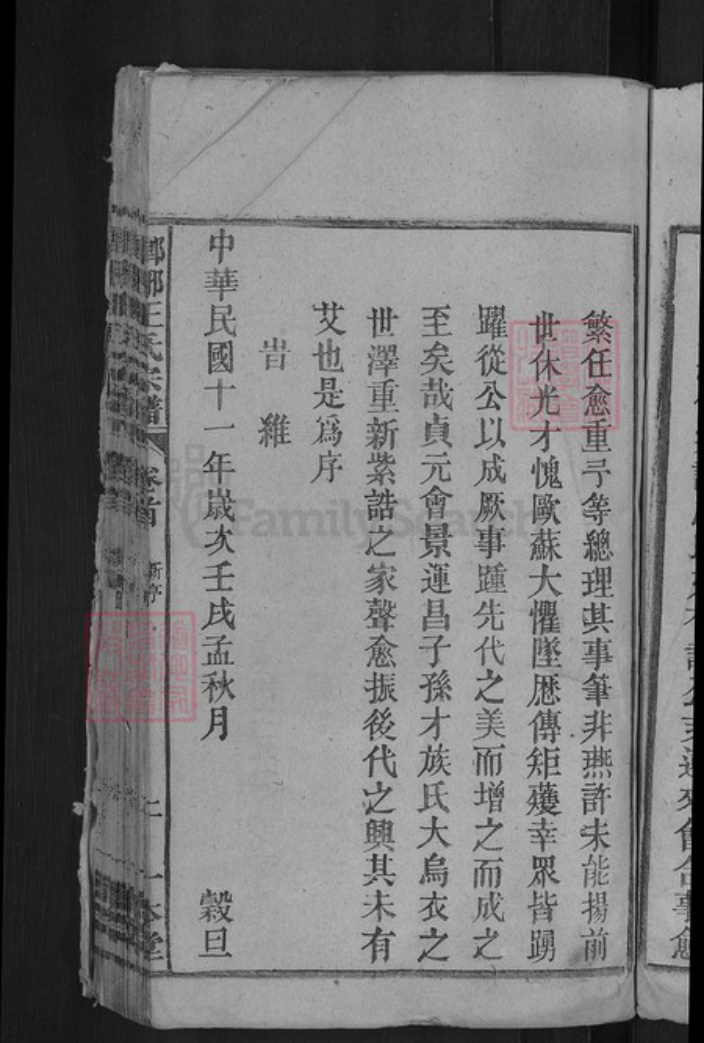 繁任愈重予等總理其事筆非燕許未能揚前
世休光才愧歐蘇大懼墜厯傳矩矱幸眾皆踴
躍從公以成厥事踵先代之美而增之而成之
至矣哉貞元會景運昌子孫才族氏大烏衣之
世澤重新紫誥之家聲愈振後代之興其未有
艾也是爲序
旹維
中華民國十一年歲次壬戌孟秋月 穀旦
瑯琊王氏宗譜 卷首 新序 一本堂
FamilySearch